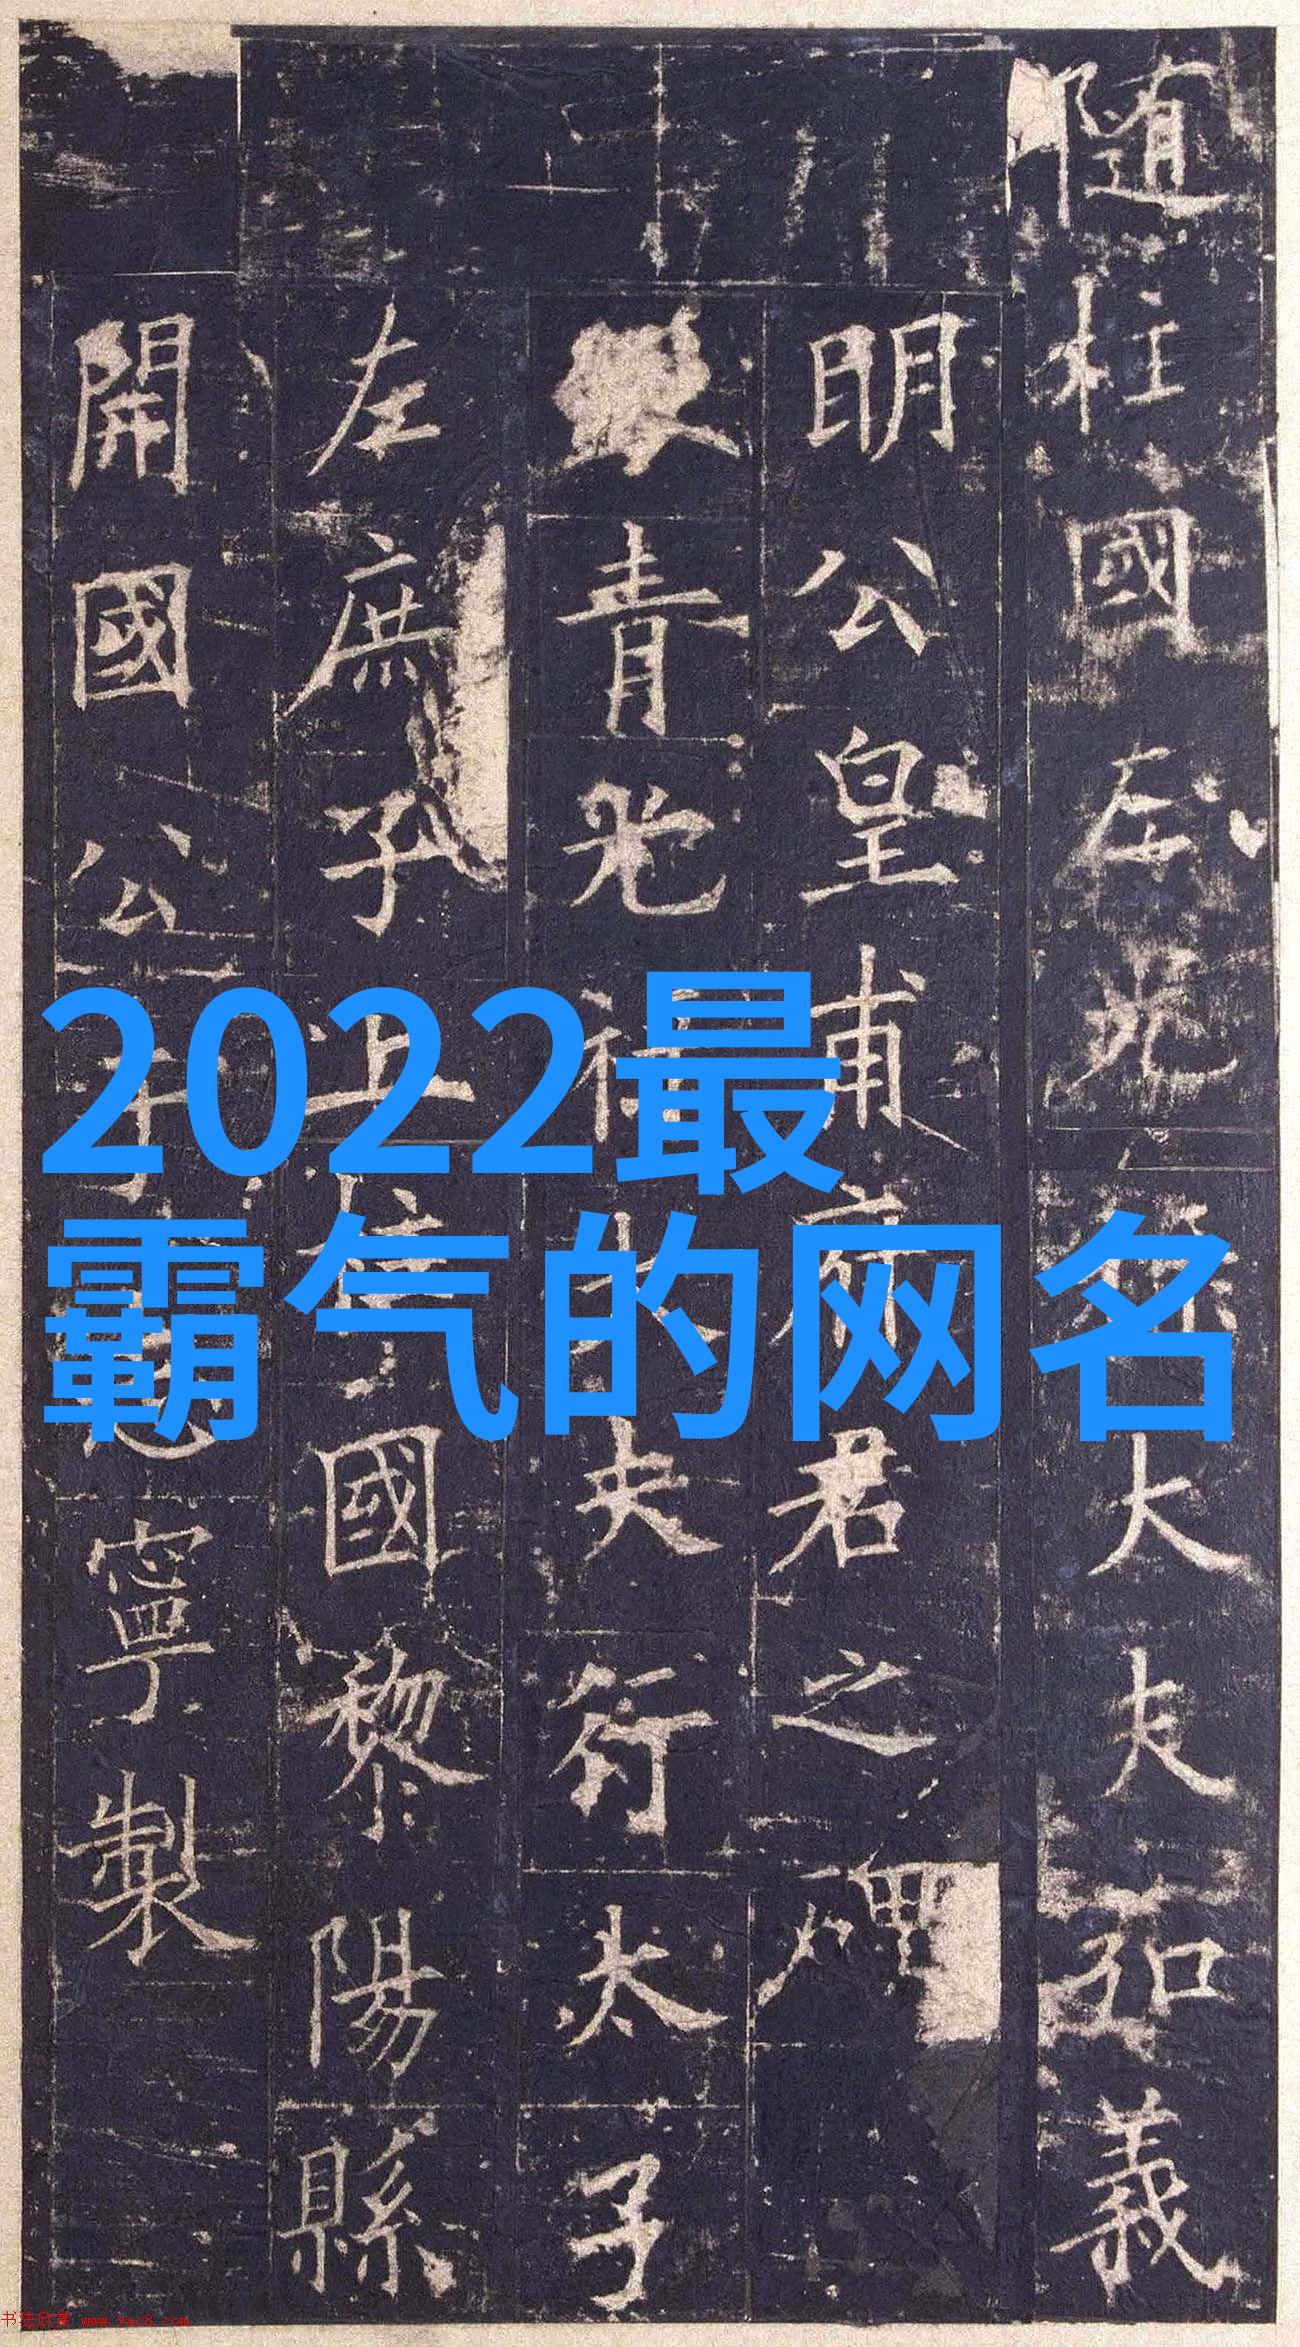 隨柱國左光祿大夫弘義
明公皇甫府君之碑
銀青光祿大夫行太子
左庶子上柱國黎陽縣
開國公于志寧製
2022最
霸气的网名
书法欣赏 www.yac8.com